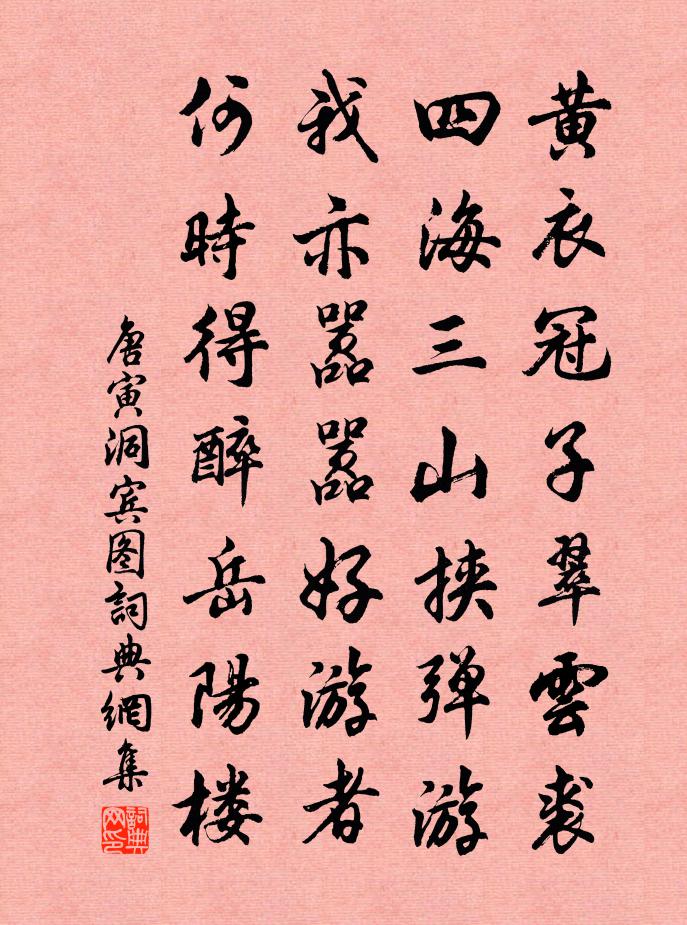 黄衣冠子翠雲裘
四海三山挟弹游
我亦嚣嚣好游者
何時得醉岳陽楼
唐寅洞宾图詞典網集
詞典网印